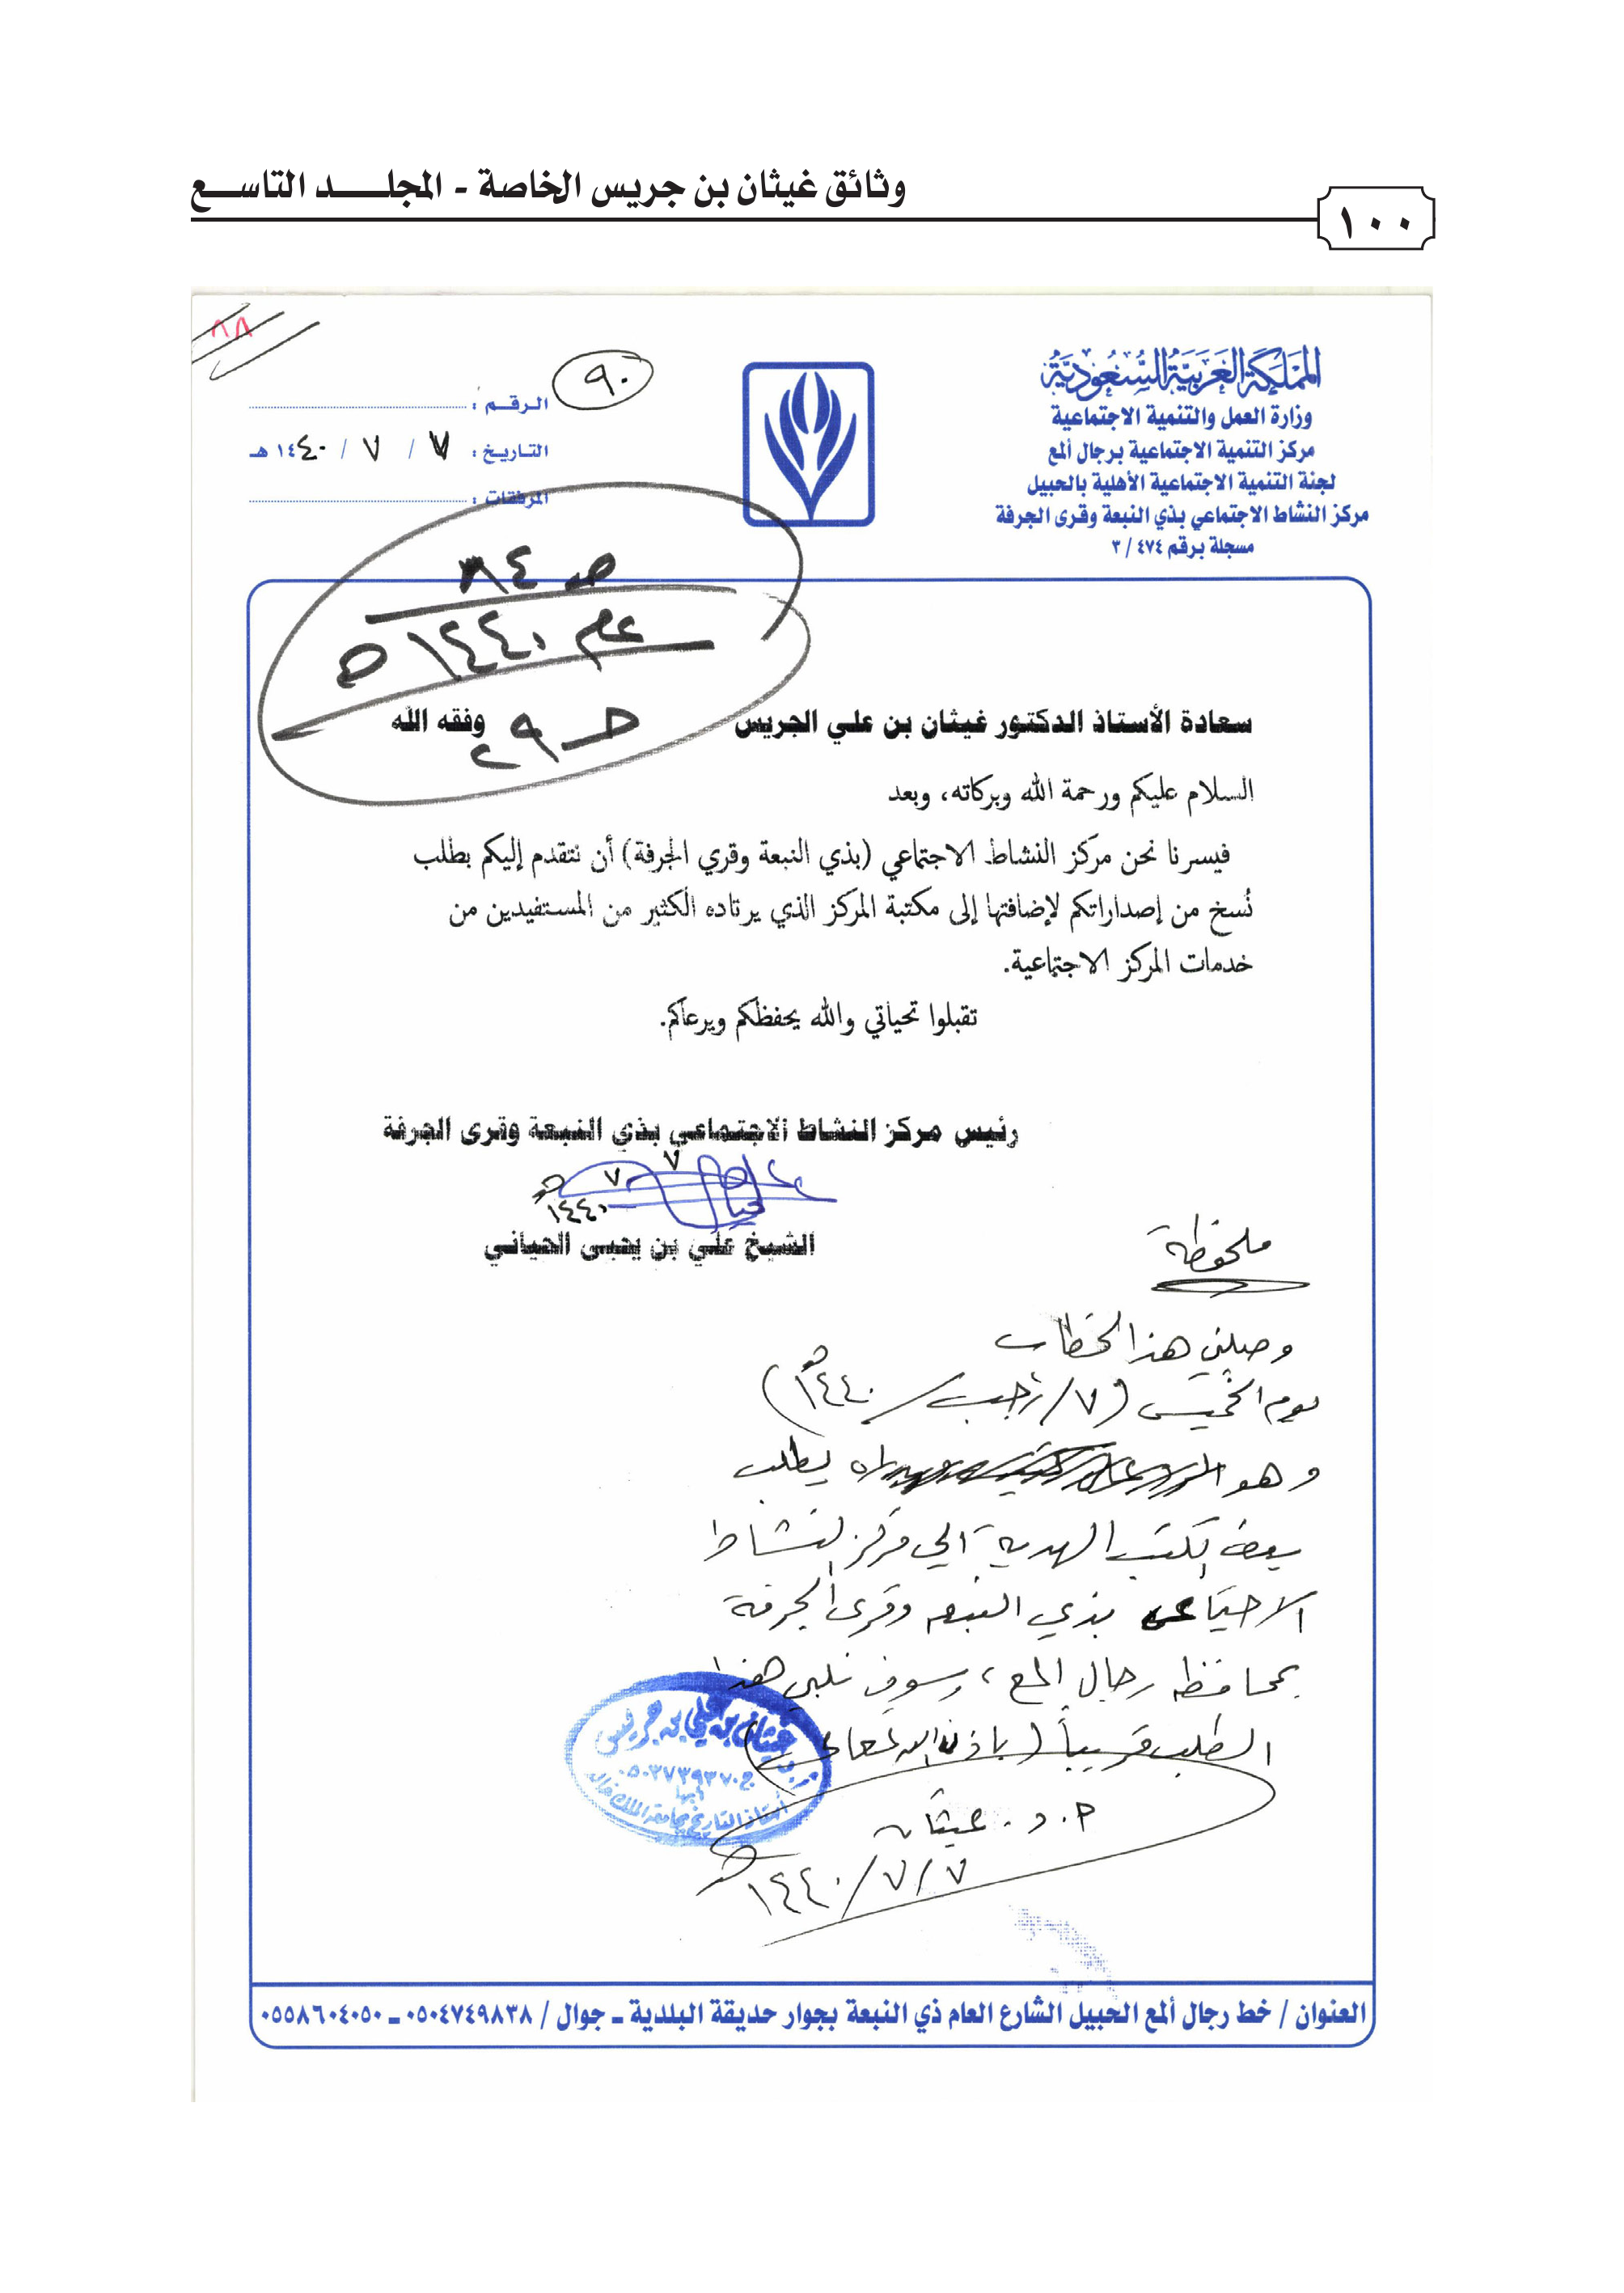 وثائق غيثان بن جريس الخاصة - المجلـــد التاســـع
١٠٠
المملكة العربية السعودية
وزارة العمل والتنمية الاجتماعية
مركز التنمية الاجتماعية برجال ألمع
لجنة التنمية الاجتماعية الأهلية بالحبيل
مركز النشاط الاجتماعي بذي النبعة وقرى الجرفة
مسجلة برقم ٤٧٤ / ٣
٨٨
٩٠
الرقـم :
التاريـخ : ٧ / ٧ / ١٤٤٠ هـ
المرفقات :
صـ ٨٤
عام ١٤٤٠ هـ
سعادة الأستاذ الدكتور غيثان بن علي الجريس وفقه الله
السلام عليكم ورحمة الله وبركاته، وبعد
فيسرنا نحن مركز النشاط الاجتماعي (بذي النبعة وقري الجرفة) أن نتقدم إليكم بطلب
نُسخ من إصداراتكم لإضافتها إلى مكتبة المركز الذي يرتاده الكثير من المستفيدين من
خدمات المركز الاجتماعية.
تقبلوا تحياتي والله يحفظكم ويرعاكم.
رئيس مركز النشاط الاجتماعي بذي النبعة وقرى الجرفة
٧ ٧ ١٤٤٠ هـ
الشيخ علي بن يحيى الحياني
ملحوظة
وصلني هذا الخطاب
يوم الخميس (٧/ رجب / ١٤٤٠ هـ)
وهو يطلب
بعض الكتب الهدية الى مركز النشاط
الاجتماعي بذي النبعه وقرى الجرفة
بمحافظه رجال المع، وسوف نلبي هذا
الطلب قريباً (باذن الله تعالى)
أ. د. غيثان
٧/٧/ ١٤٤٠ هـ
غيثان بن علي بن جريس
ج. ٠٥٠٣٧٣٩٣٧٠
أبها
أستاذ التاريخ بجامعة الملك خالد
العنوان / خط رجال ألمع الحبيل الشارع العام ذي النبعة بجوار حديقة البلدية ـ جوال / ٠٥٠٤٧٤٩٨٣٨ ـ ٠٥٥٨٦٠٤٠٥٠